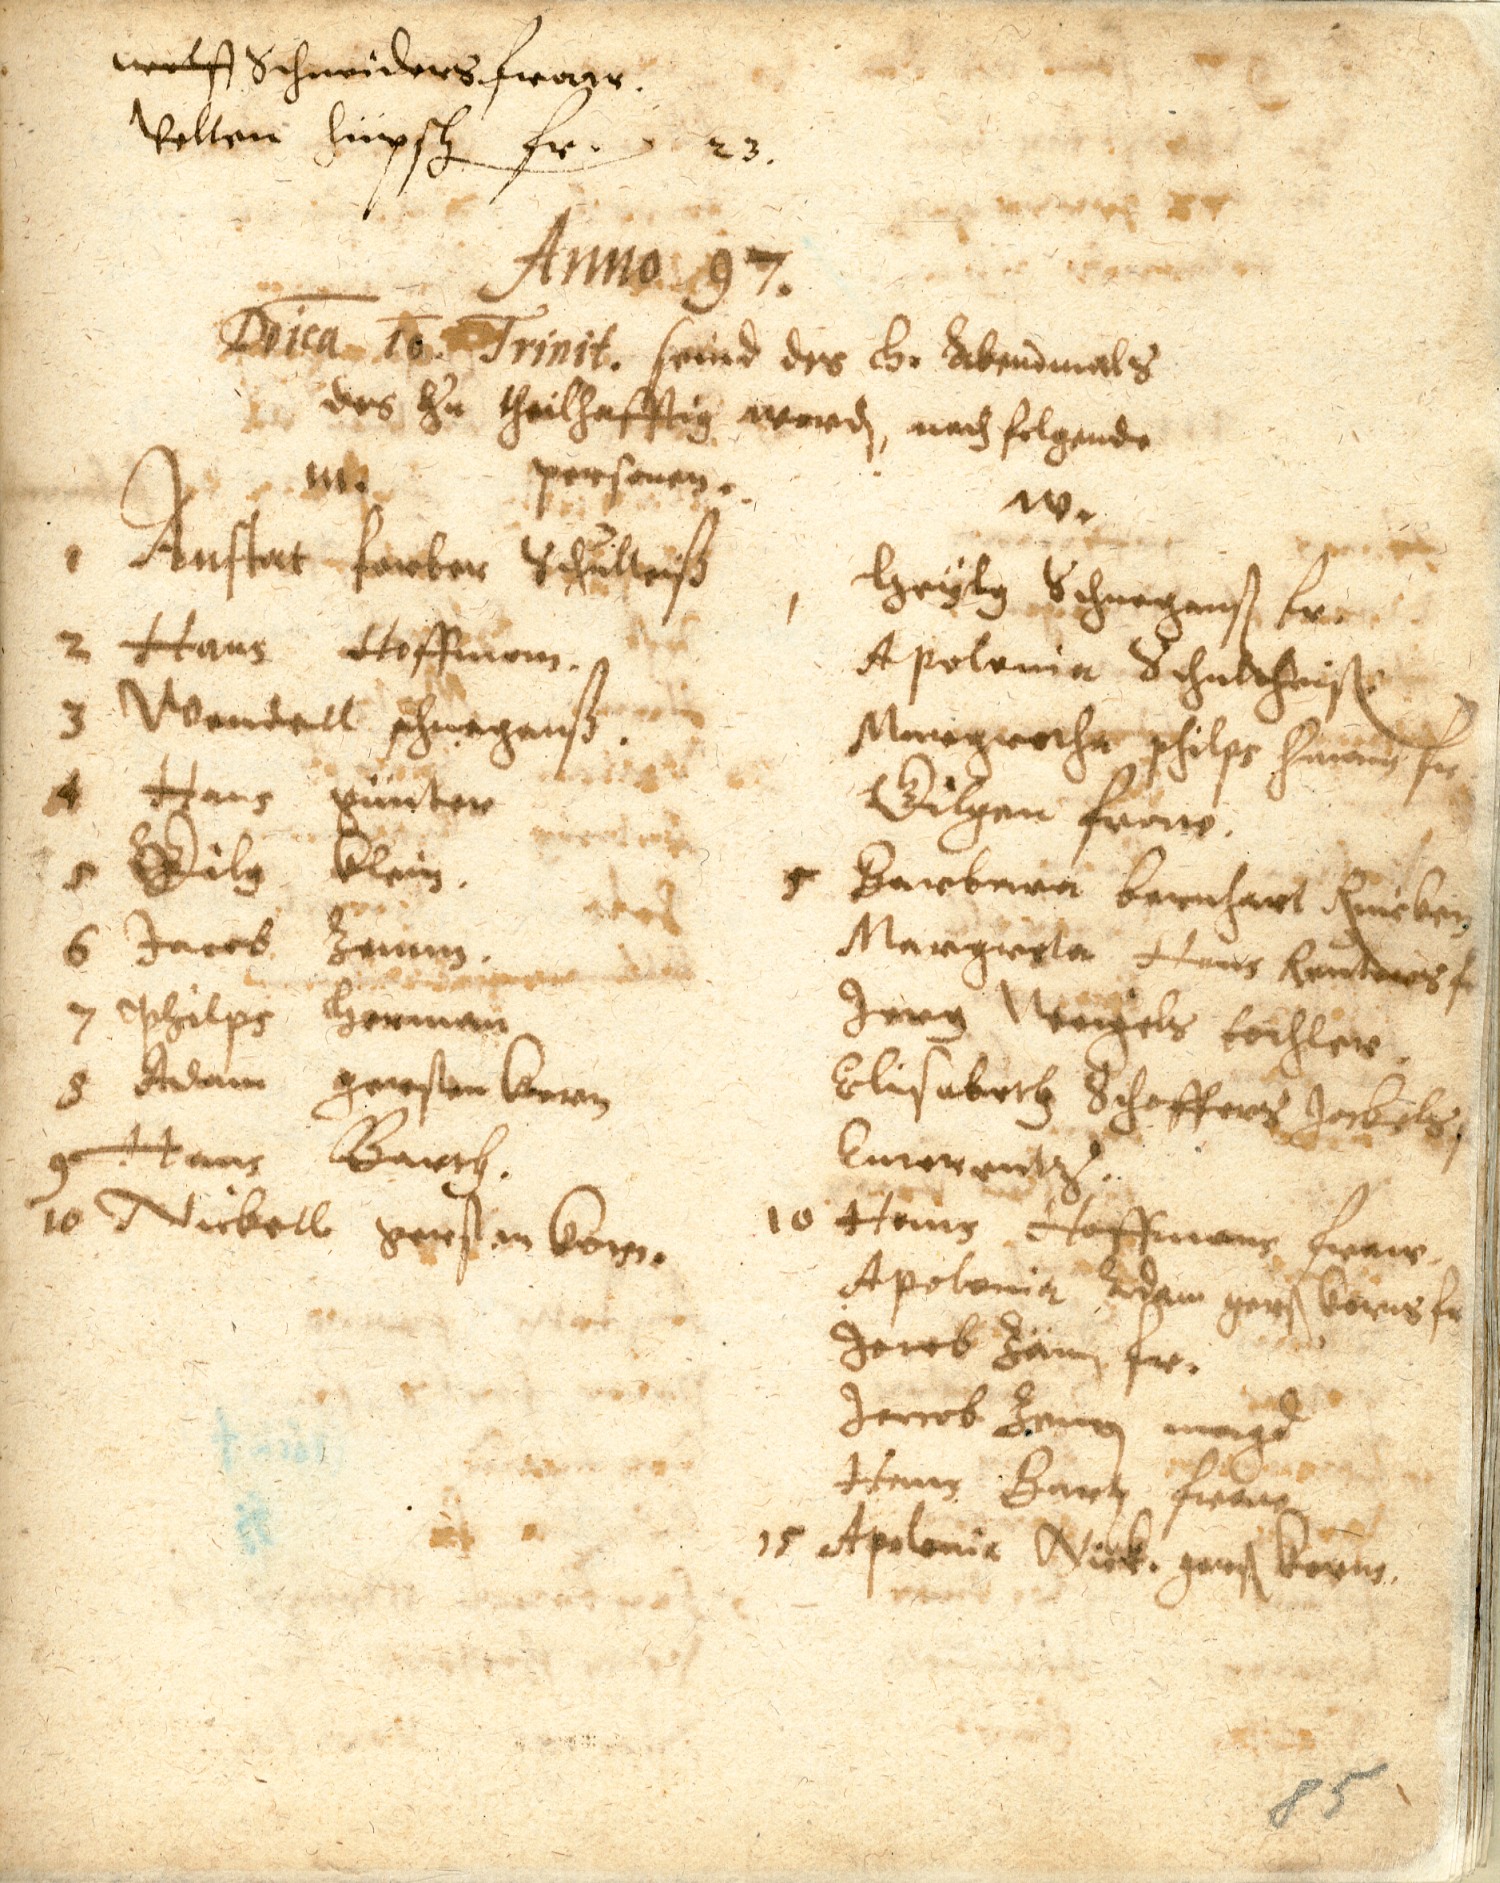 Schneiders fraw.
Velten hüpsch fr. 23.
Anno 97.
Doica 10. Trinit. seind des h. Abendmals
des Hn theilhafftig word, nachfolgende
m. personen. w.
1 Anstat ferber Schulteiß
2 Hans Hoffman.
3 Wendell schneganß.
4 Hans günter
5 Gilg Klein.
6 Jacob Zamm.
7 Philps Herman
8 Adam gersten Korn
9 Hans Barth.
10 Nickell gersten Korn.
1 Heylg Schneganß fr.
Apolonia Schultheiß
Margretha philps hmans fr
Gilgen fraw.
5 Barbara bernhart
Margreta Hans Renters fr
Jerg Weigels tochter.
Elisabeth Scheffers Jockels
Emerentz.
10 Hans Hoffmans fraw.
Apolonia Adam gerst Korns fr
Jacob Zam fr.
Jacob Zam magd
Hans Bartz fraw
15 Apolonia Nick. gerst Korns.
85